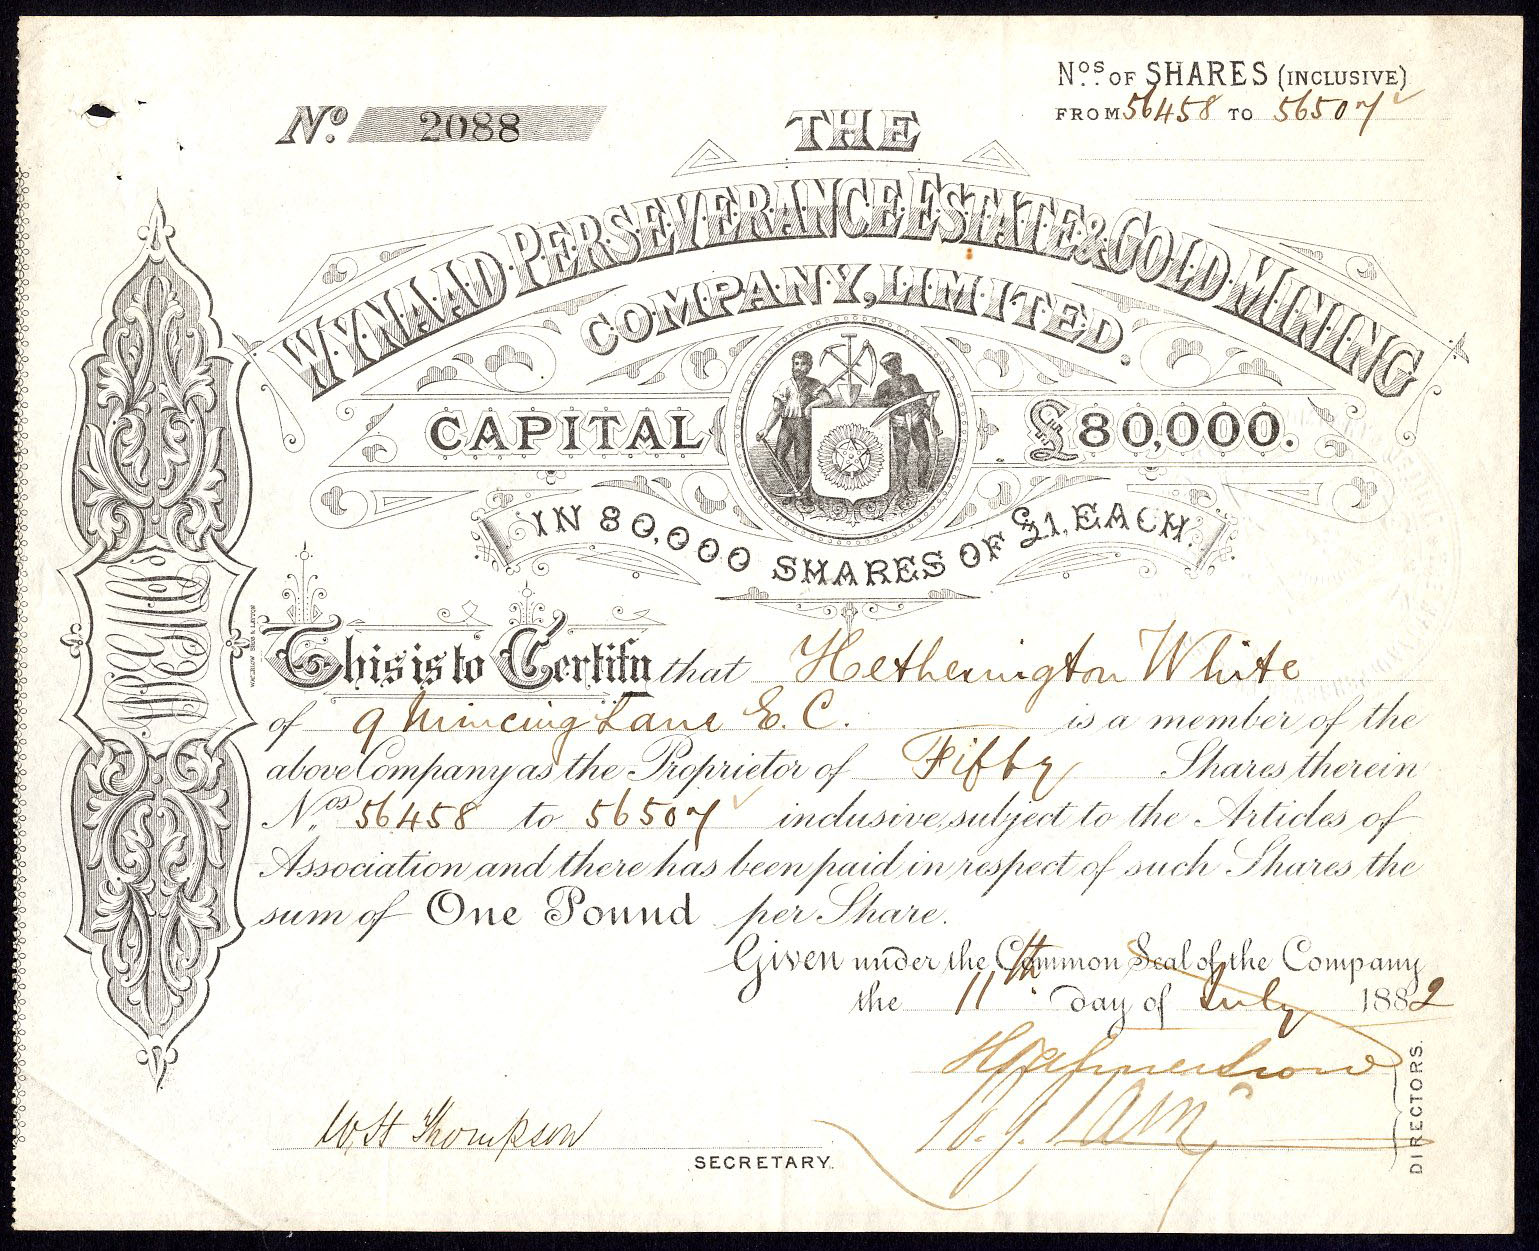 Nos. OF SHARES (INCLUSIVE)
FROM 56458 TO 56507
No. 2088
THE
WYNAAD PERSEVERANCE ESTATE & GOLD MINING
COMPANY, LIMITED.
CAPITAL £80,000.
IN 80,000 SHARES OF £1, EACH.
This is to Certify that Hetherington White
of 9 Mincing Lane E. C. is a member of the
above Company as the Proprietor of Fifty Shares therein
Nos. 56458 to 56507 inclusive, subject to the Articles of
Association and there has been paid in respect of such Shares the
sum of One Pound per Share.
Given under the Common Seal of the Company
the 11th day of July 1882
W H Thompson
SECRETARY.
DIRECTORS.